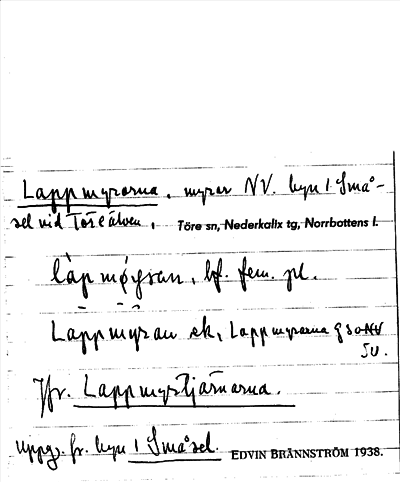 Lappmyrarna, myrar NV. byn 1 Små-
sel vid Töreälven, Töre sn, Nederkalix tg, Norrbottens l.
làpmøy̬ran, bf. fem. pl.
Lappmyran ek, Lappmyrarna g 30 NV
SV.
Jfr. Lappmyrtjärnarna.
Uppg. fr. byn 1 Småsel. EDVIN BRÄNNSTRÖM 1938.